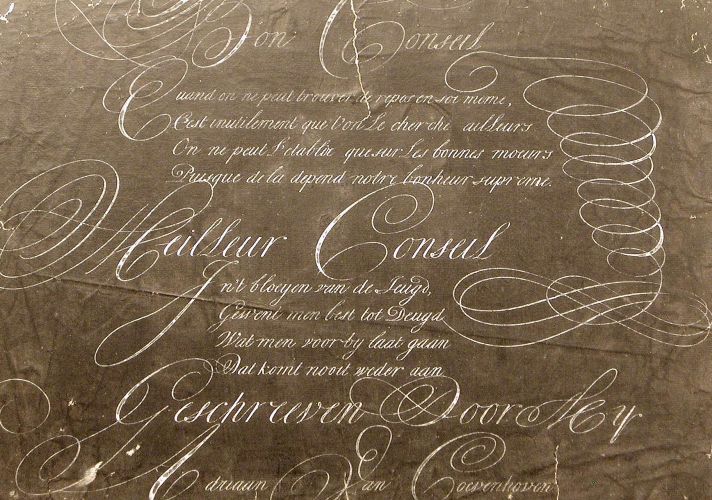 Bon Conseil
Quand on ne peut trouver de repos en soi meme,
C'est inutilement que l'on Le cherche ailleurs
On ne peut l'etablir que sur Les bonnes moeurs
Puisque de la depend notre bonheur supreme.
Meilleur Conseil
In't bloeyen van de Jeugd,
Gewent men best tot Deugd
Wat men voor by laat gaan
Dat komt nooit weder aan
Geschreeven Door My
Adriaan Van Coevenhoven